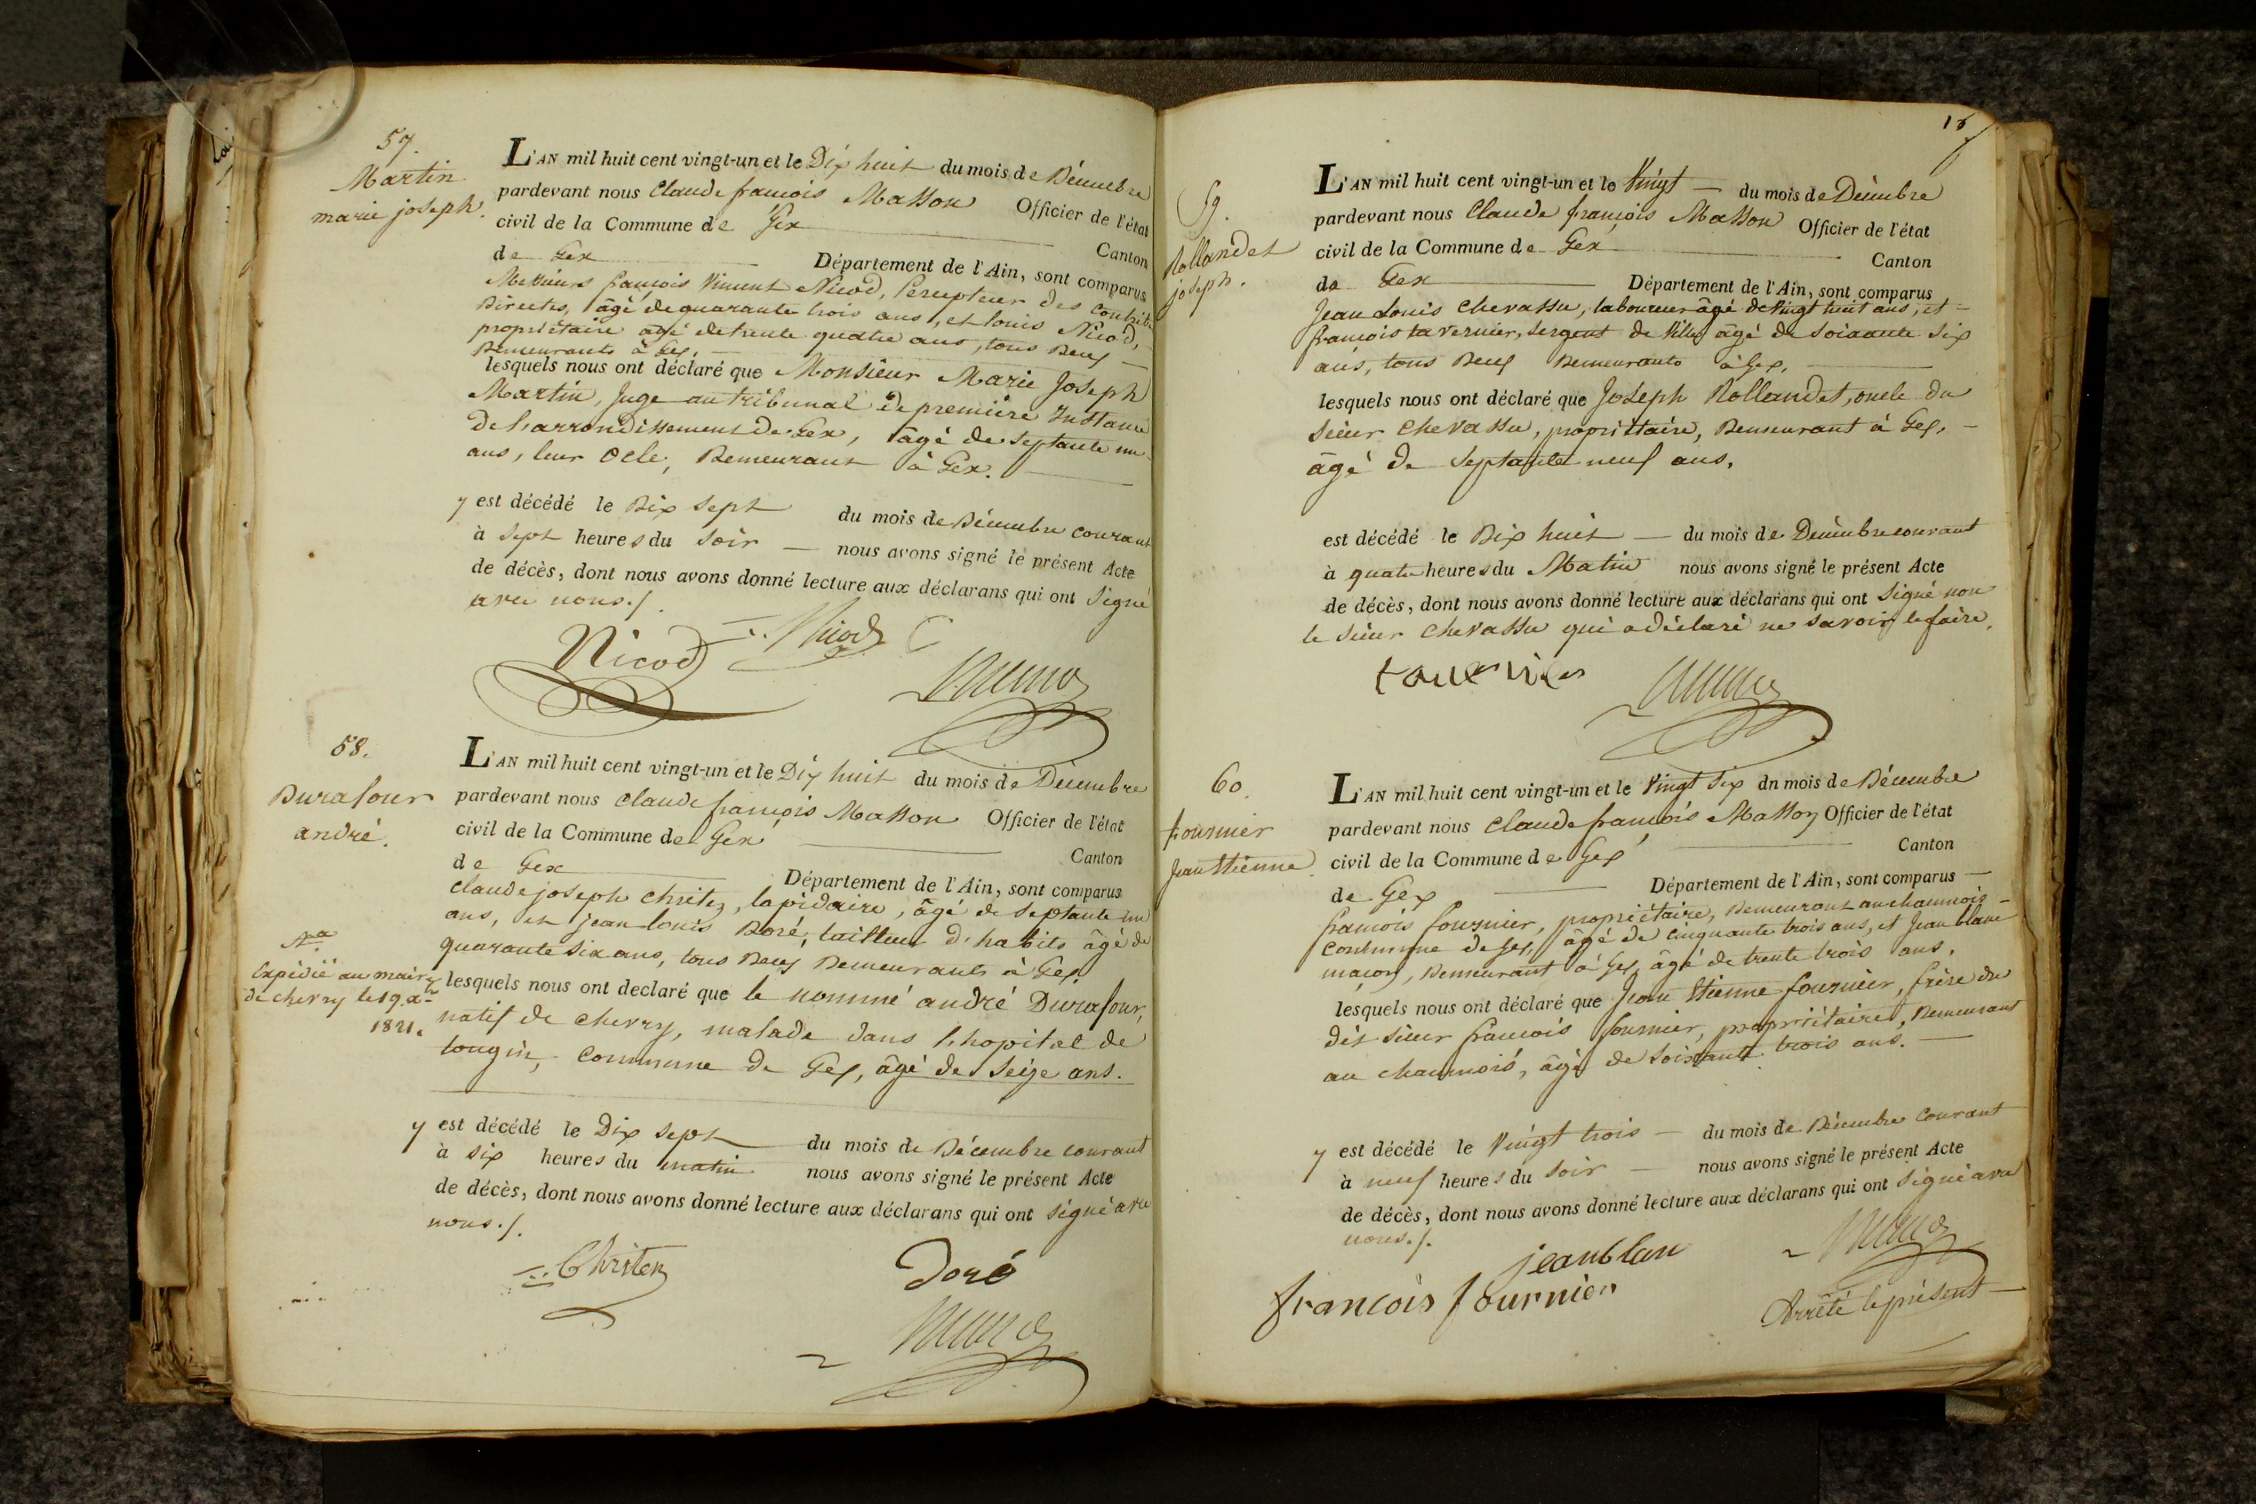 57.
Martin
marie joseph.
L'AN mil huit cent vingt-un et le Dix huit du mois de Décembre
pardevant nous Claude françois Masson Officier de l'état
civil de la Commune de Gex
Canton
de Gex Département de l'Ain, sont comparus
Messieurs françois Vincent Nicod, Percepteur des contrib
Directes, âgé de quarante trois ans, et louis Nicod,
propriétaire âgé de trente quatre ans, tous Deux
Demeurants à Gex.
lesquels nous ont déclaré que Monsieur Marie Joseph
Martin, Juge au tribunal de première Instance
De l'arrondissement de Gex, âgé de septante un
ans, leur Ocle, Demeurant à Gex.
y est décédé le Dix sept du mois de Décembre courant
à sept heures du soir nous avons signé le présent Acte
de décès, dont nous avons donné lecture aux déclarans qui ont signé
avec nous./.
Nicod Nicod
58.
Durafour
andré.
Na
Expédié au maire
de chevry le 19. Xre
1821.
L'AN mil huit cent vingt-un et le Dix huit du mois de Décembre
pardevant nous Claude françois Masson Officier de l'état
civil de la Commune de Gex
Canton
de Gex Département de l'Ain, sont comparus
Claude joseph Christen, lapidaire, âgé de septante un
ans, et jean louis Doré, tailleur d'habits âgé de
quarante six ans, tous Deux Demeurants à Gex
lesquels nous ont declaré que le nommé andré Durafour,
natif de Chevry, malade dans l'hopital de
tougin, Commune de Gex, âgé de seize ans.
y est décédé le Dix sept du mois de Décembre courant
à six heures du matin nous avons signé le présent Acte
de décès, dont nous avons donné lecture aux déclarans qui ont signé avec
nous./.
Christen Doré
59.
Rollandet
joseph.
L'AN mil huit cent vingt-un et le Vingt du mois de Décembre
pardevant nous Claude françois Masson Officier de l'état
civil de la Commune de Gex
Canton
de Gex Département de l'Ain, sont comparus
Jean Louis Chevassu, laboureur âgé de Vingt huit ans, et
françois tavernier, sergent de Ville, âgé de soixante six
ans, tous Deux Demeurants à Gex.
lesquels nous ont déclaré que Joseph Rollandet, oncle du
sieur Chevassu, propriétaire, Demeurant à Gex,
âgé de septante neuf ans.
est décédé le Dix huit du mois de Décembre courant
à quatre heures du Matin nous avons signé le présent Acte
de décès, dont nous avons donné lecture aux déclarans qui ont signé non
le sieur Chevassu qui a déclaré ne savoir le faire.
tavernier
60.
fournier
Jean Etienne.
L'AN mil huit cent vingt-un et le Vingt six du mois de Décembre
pardevant nous Claude françois Masson Officier de l'état
civil de la Commune de Gex
Canton
de Gex Département de l'Ain, sont comparus
françois fournier, propriétaire, Demeurant au chaumois
Commune de Gex, âgé de cinquante trois ans, et Jean blanc
maçon, Demeurant à Gex âgé de trente trois ans.
lesquels nous ont déclaré que Jean Etienne fournier, frère du
dit sieur françois fournier, propriétaire, Demeurant
au chaumois, âgé de soixante trois ans.
y est décédé le Vingt trois du mois de Décembre Courant
à neuf heures du soir nous avons signé le présent Acte
de décès, dont nous avons donné lecture aux déclarans qui ont signé avec
nous./.
jean blan
francois fournier
Arrêté le présent